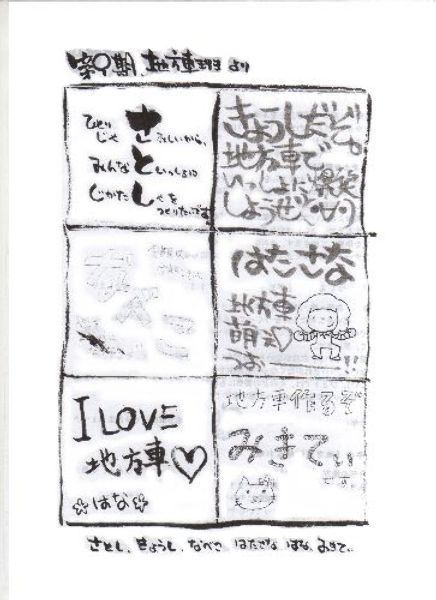 第9期、地方車班より
ひとり
じゃ さみしいから、
みんな といっしょに
じかた しゃを
つくりたいです
きょうしだぞ。
地方車で
いっしょに爆笑
しようぜ(・∀・)
なべこ
はたさな
地方車
萌え♡
つお――――!!
I LOVE
地方車♡
☆はな☆
地方車作るぞ
みきてぃ
です。
さとし、きょうし、なべこ はたさな はな、みきてぃ